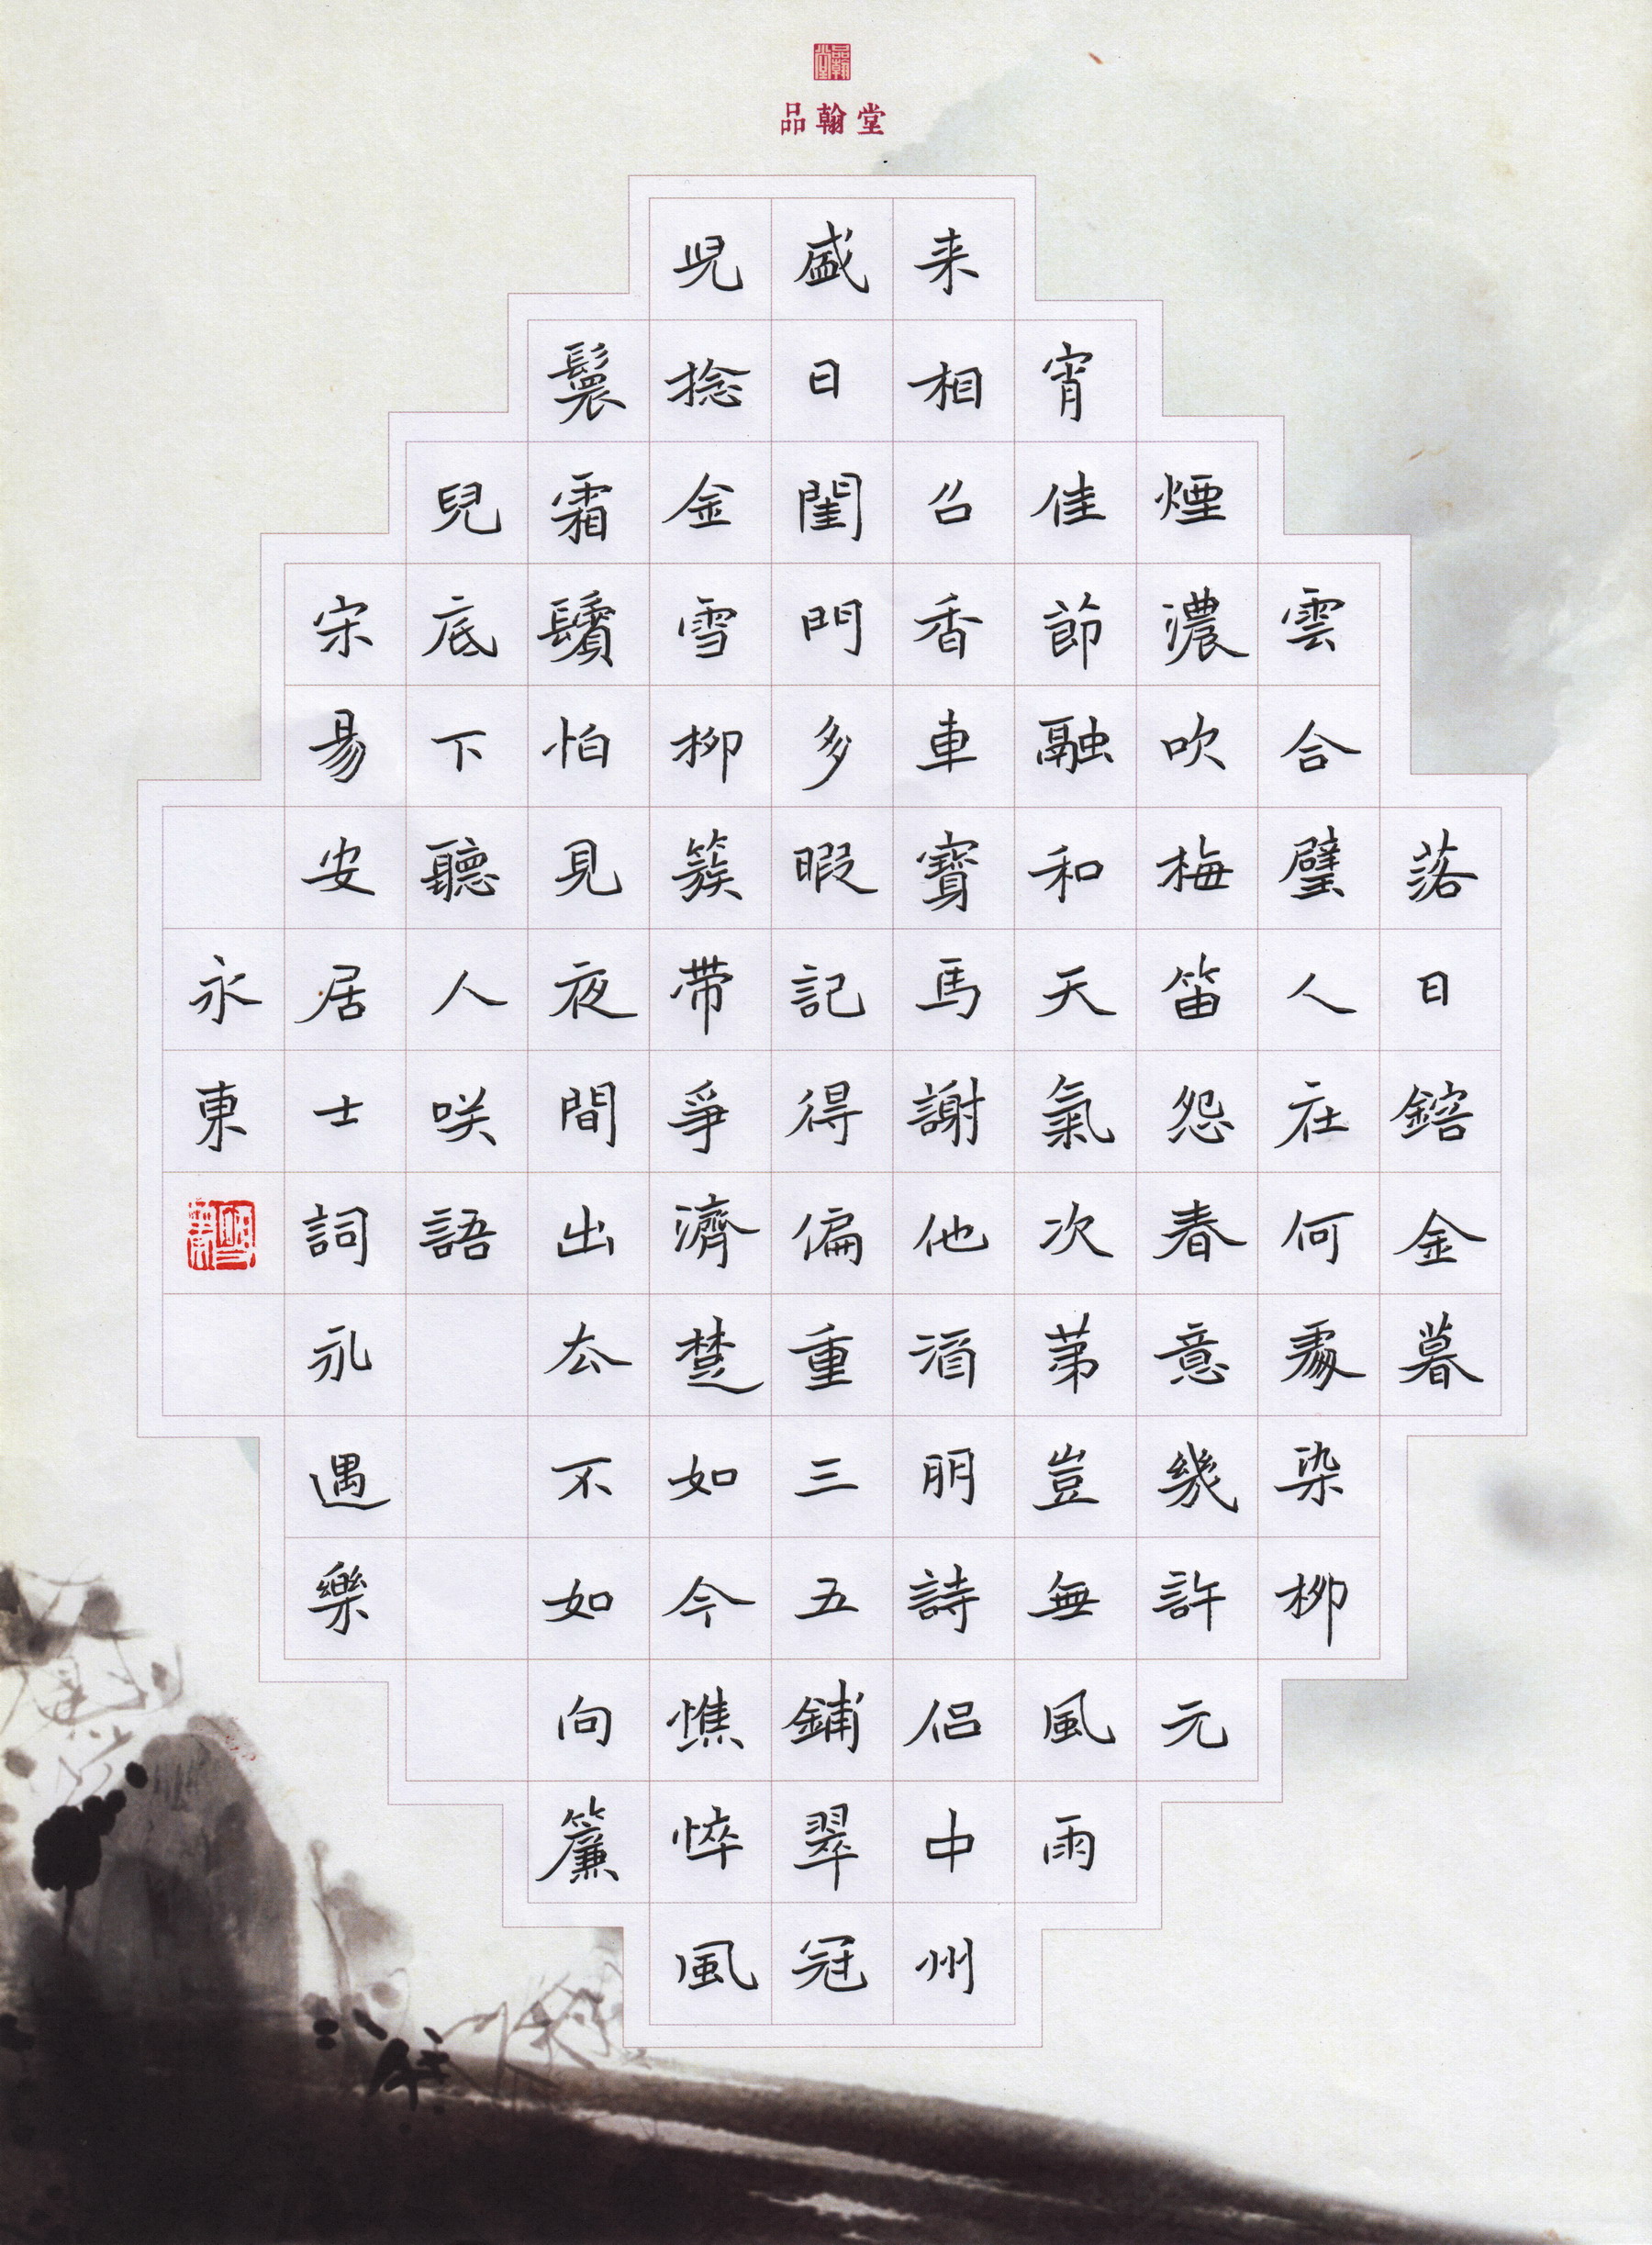 品翰堂
落日鎔金暮
雲合璧人在何處染柳
煙濃吹梅笛怨春意幾許元
宵佳節融和天氣次苐豈無風雨
来相召香車寶馬謝他酒朋詩侣中州
盛日閨門多暇記得偏重三五鋪翠冠
兒捻金雪柳簇带爭濟楚如今憔悴風
鬟霜鬢怕見夜間出厺不如向簾
兒底下聽人咲語
宋易安居士詞永遇樂
永東